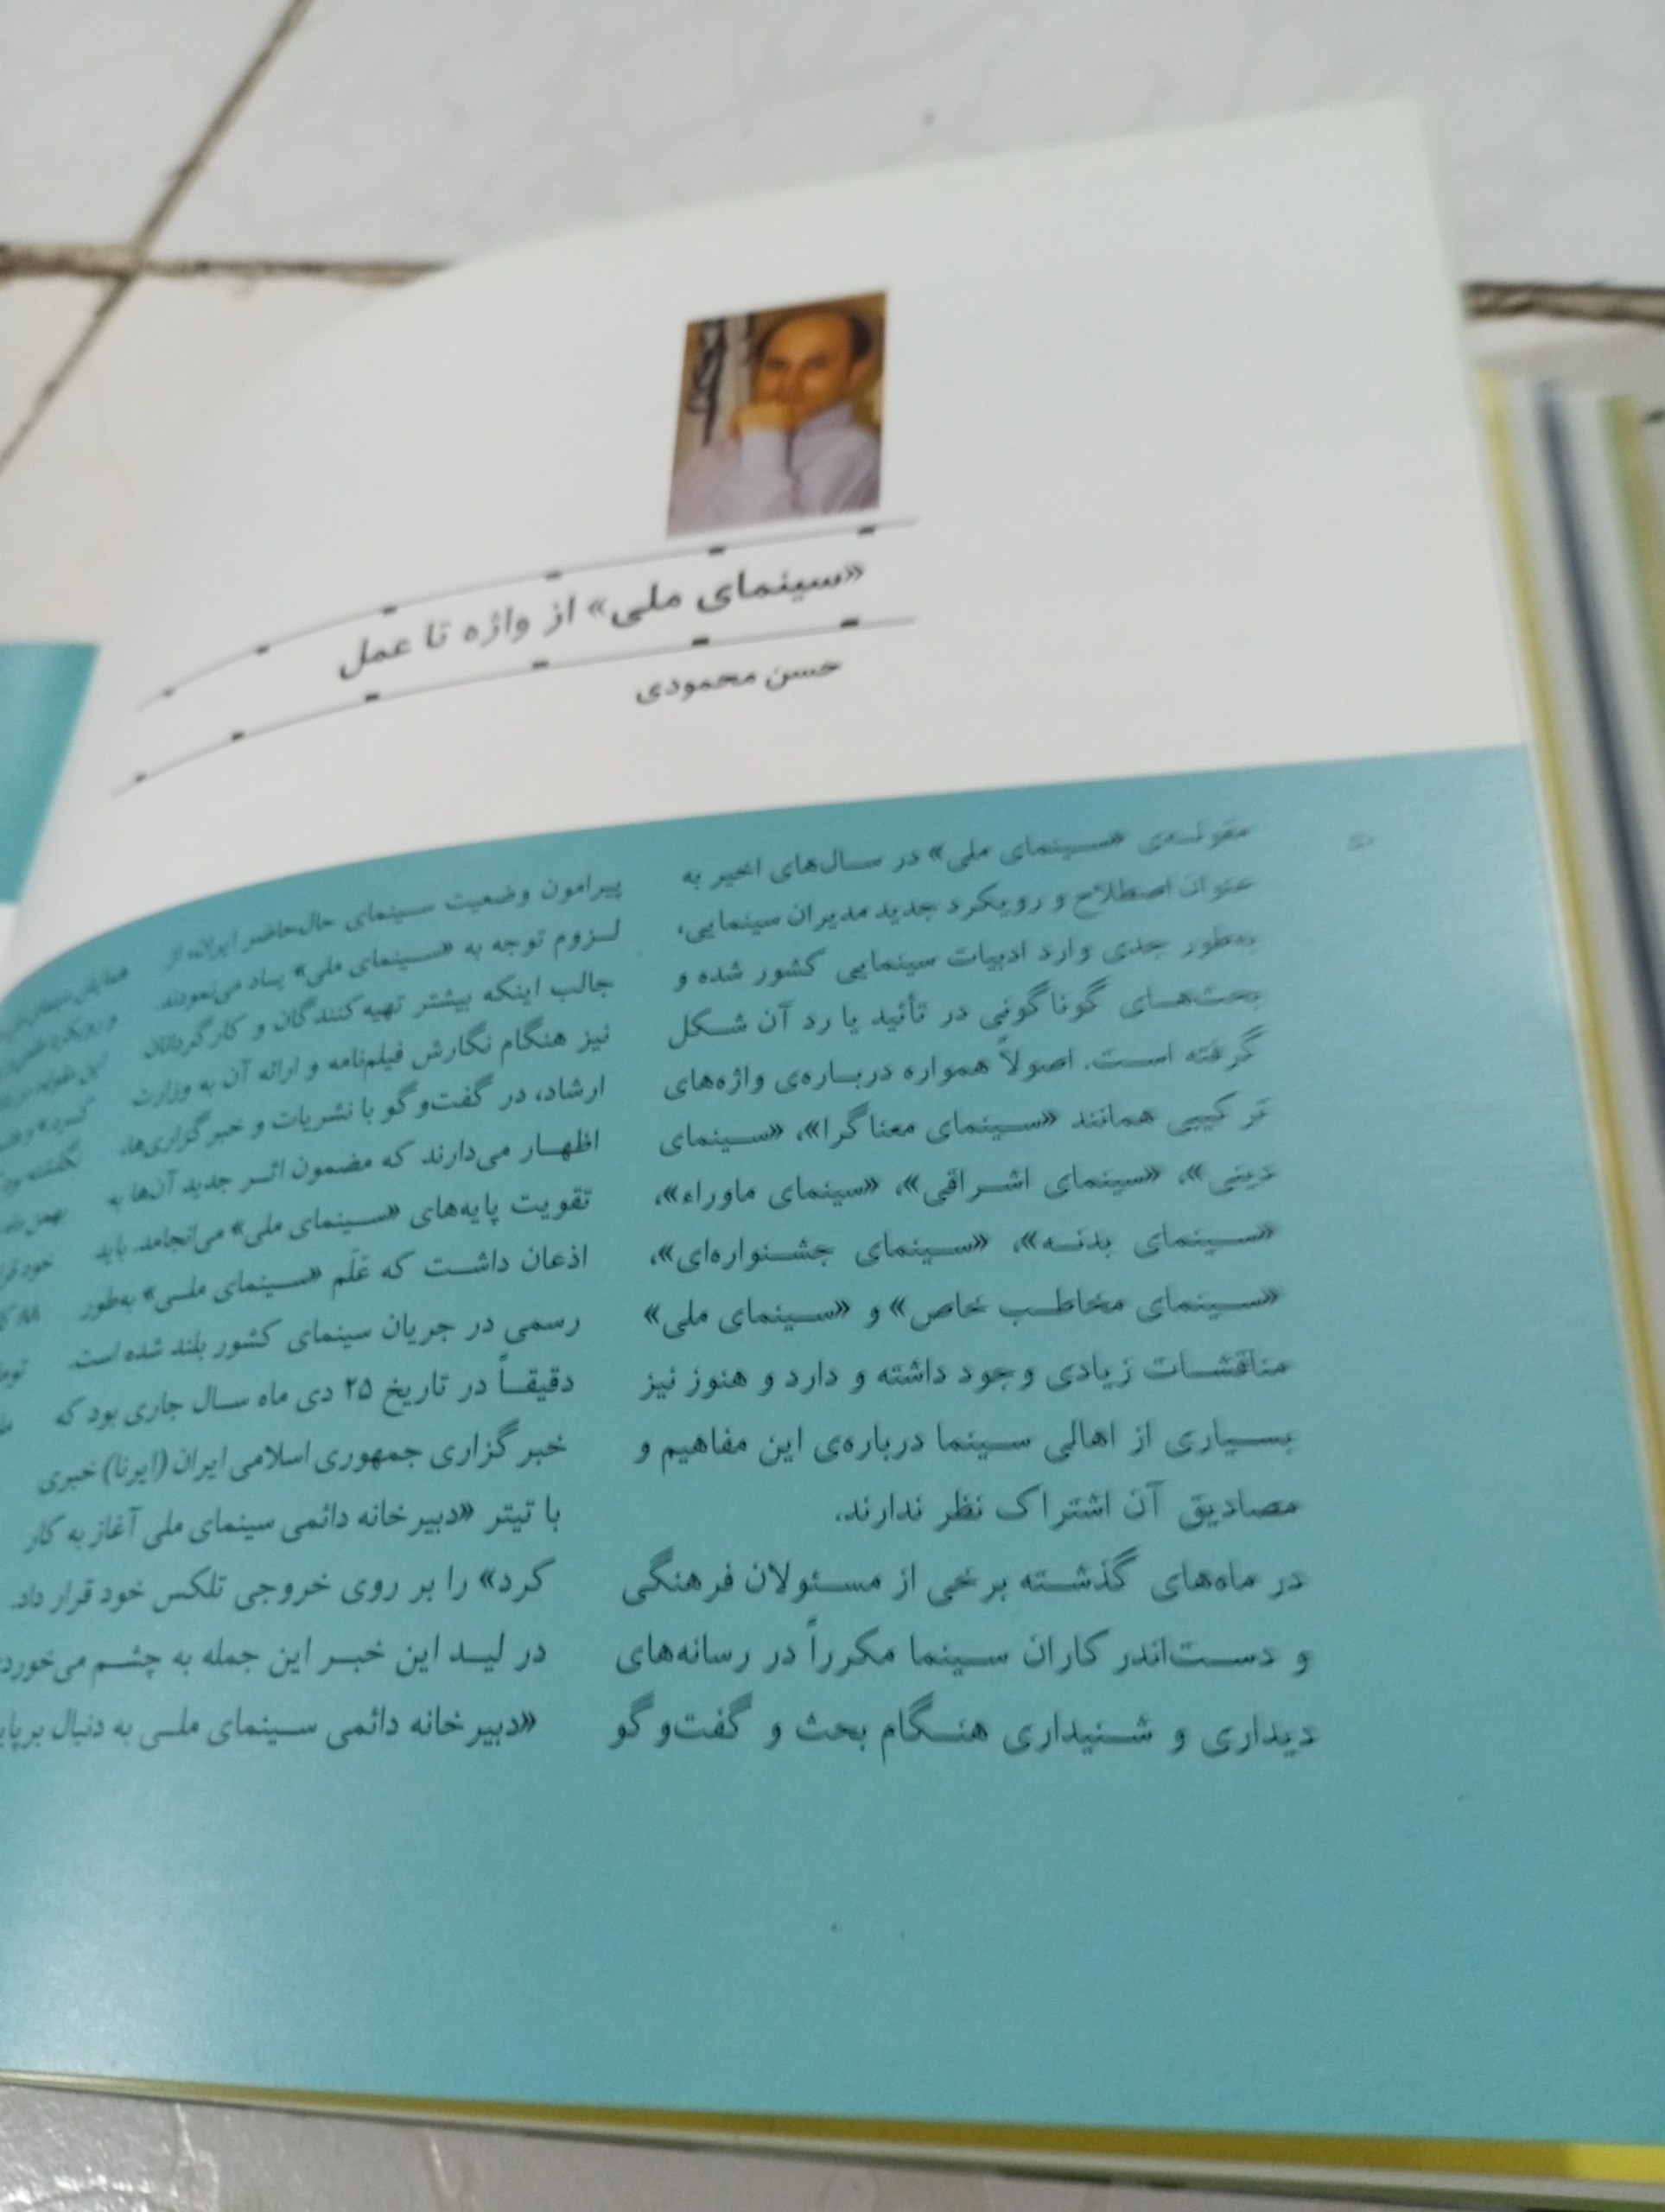 «سینمای ملی» از واژه تا عمل
حسن محمودی
مقولـه‌ی «سـینمای ملی» در سـال‌های اخیر به
عنوان اصطلاح و رویکرد جدید مدیران سینمایی،
به‌طور جدی وارد ادبیات سینمایی کشور شده و
بحث‌هـای گوناگونی در تأئید یا رد آن شـکل
گرفته اسـت. اصولاً همواره دربـاره‌ی واژه‌های
ترکیبی همانند «سـینمای معناگرا»، «سـینمای
دینی»، «سینمای اشـراقی»، «سینمای ماوراء»،
«سـینمای بدنـه»، «سـینمای جشـنواره‌ای»،
«سـینمای مخاطـب خاص» و «سـینمای ملی»
مناقشـات زیادی وجود داشته و دارد و هنوز نیز
بسـیاری از اهالی سـینما درباره‌ی این مفاهیم و
مصادیق آن اشتراک نظر ندارند.
در ماه‌های گذشـته برخی از مسـئولان فرهنگی
و دسـت‌اندرکاران سـینما مکرراً در رسانه‌های
دیداری و شـنیداری هنـگام بحث و گفت‌وگو
پیرامون وضعیت سـینمای حال‌حاضر ایران، از
لـزوم توجه به «سـینمای ملی» یـاد می‌نمودند.
جالب اینکه بیشتر تهیه‌کنندگان و کارگردانان
نیز هنگام نگارش فیلم‌نامه و ارائه آن به وزارت
ارشاد، در گفت‌وگو با نشریات و خبرگزاری‌ها،
اظهـار می‌دارند که مضمون اثـر جدید آن‌ها به
تقویت پایه‌های «سـینمای ملی» می‌انجامد. باید
اذعان داشـت که عَلَم «سـینمای ملـی» به‌طور
رسمی در جریان سینمای کشور بلند شده است.
دقیقـاً در تاریخ ۲۵ دی ماه سـال جاری بود که
خبرگزاری جمهوری اسلامی ایران (ایرنا) خبری
با تیتر «دبیرخانه دائمی سینمای ملی آغاز به کار
کرد» را بر روی خروجی تلکس خود قرار داد.
در لیـد این خبـر این جمله به چشـم می‌خورد:
«دبیرخانه دائمی سـینمای ملـی به دنبال